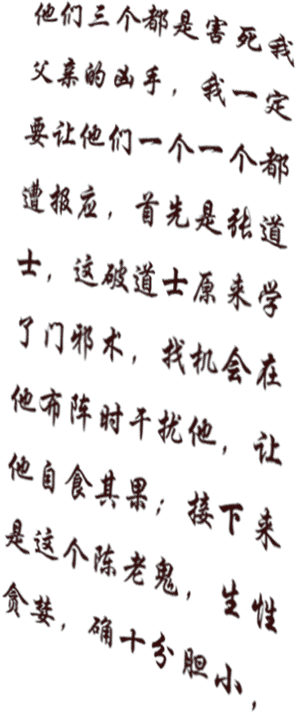 他们三个都是害死我
父亲的凶手，我一定
要让他们一个一个都
遭报应，首先是张道
士，这破道士原来学
了门邪术，找机会在
他布阵时干扰他，让
他自食其果；接下来
是这个陈老鬼，生性
贪婪，确十分胆小，